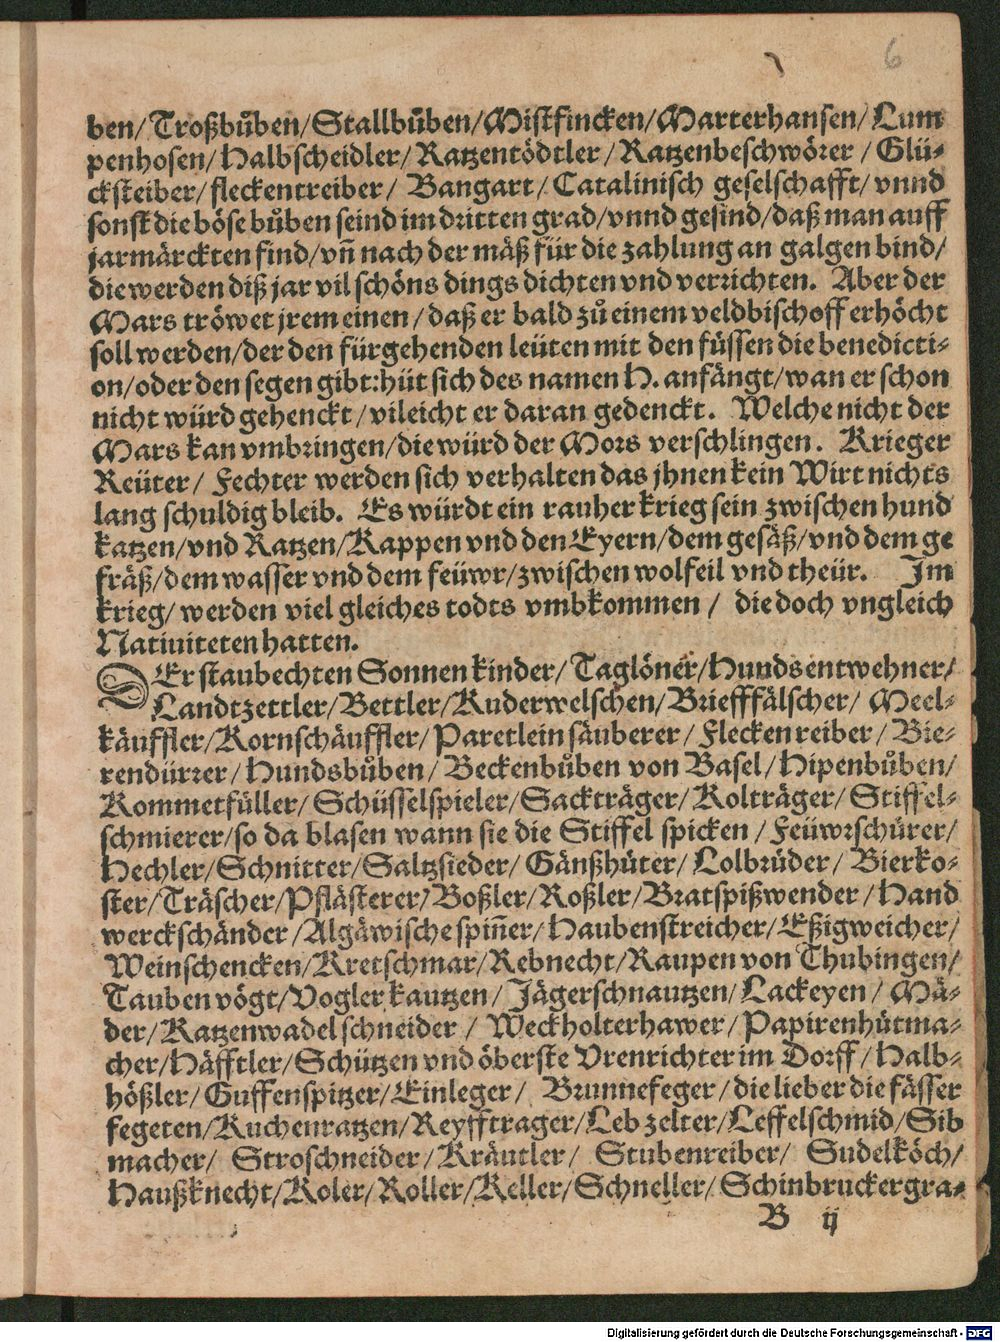 6
ben/Troßbuͤben/Stallbuͤben/Mistfincken/Marterhansen/Lum
penhosen/Halbscheidler/Ratzentödtler/Ratzenbeschwörer/Glü-
cksteiber/fleckentreiber/ Bangart/Catalinisch geselschafft/vnnd
sonst die böse buͦben seind im dritten grad/vnnd gesind/daß man auff
jarmärckten find/vñ nach der mäß für die zahlung an galgen bind/
die werden diß jar vil schöns dings dichten vnd verrichten. Aber der
Mars tröwet jrem einen/daß er bald zuͦ einem veldbischoff erhöcht
soll werden/der den fürgehenden leüten mit den füssen die benedicti-
on/oder den segen gibt:hüt sich des namen H. anfängt/wan er schon
nicht würd gehenckt/vileicht er daran gedenckt. Welche nicht der
Mars kan vmbringen/die würd der Mors verschlingen. Krieger
Reüter/ Fechter werden sich verhalten das jhnen kein Wirt nichts
lang schuldig bleib. Es würdt ein rauher krieg sein zwischen hund
katzen/vnd Ratzen/Kappen vnd den Eyern/dem gesäß/vnd dem ge
fräß/dem wasser vnd dem feüwr/zwischen wolfeil vnd theür. Im
krieg/ werden viel gleiches todts vmbkommen/ die doch vngleich
Natiuiteten hatten.
DEr staubechten Sonnen kinder/Taglöner/Hunds entwehner/
Landtzettler/Bettler/Kuderwelschen/Briefffälscher/ Meel-
käuffler/Kornschäuffler/Paretlein säuberer/Flecken reiber/ Bie-
rendürrer/Hundsbuͦben/ Beckenbuͦben von Basel/Hipenbuͦben/
Kommetfüller/Schüsselspieler/Sackträger/Kolträger/Stiffel-
schmierer/so da blasen wann sie die Stiffel spicken/Feüwrschürer/
Hechler/Schnitter/Saltzsieder/ Gänßhüter/ Lolbrüder/ Bierko-
ster/Träscher/Pflästerer/Boßler/Roßler/Bratspißwender/Hand
werckschänder/Algäwische spiñer/Haubenstreicher/Eßigweicher/
Weinschencken/Kretschmar/Rebnecht/Raupen von Thubingen/
Tauben vögt/Vogler kautzen/ Jägerschnautzen/Lackeyen/ Mä-
der/Katzenwadel schneider/ Weckholterhawer/Papirenhütma-
cher/Häfftler/Schützen vnd öberste Vrenrichter im Dorff/Halb-
hößler/Guffenspitzer/Einleger/ Brunnefeger/die lieber die fässer
fegeten/Kuchenratzen/Reyfftrager/Leb zelter/Leffelschmid/Sib
macher/ Stroschneider/Kräutler/ Stubenreiber/ Sudelköch/
Haußknecht/Koler/Roller/Keller/Schneller/Schinbruckergra-
B ij
Digitalisierung gefördert durch die Deutsche Forschungsgemeinschaft - DFG